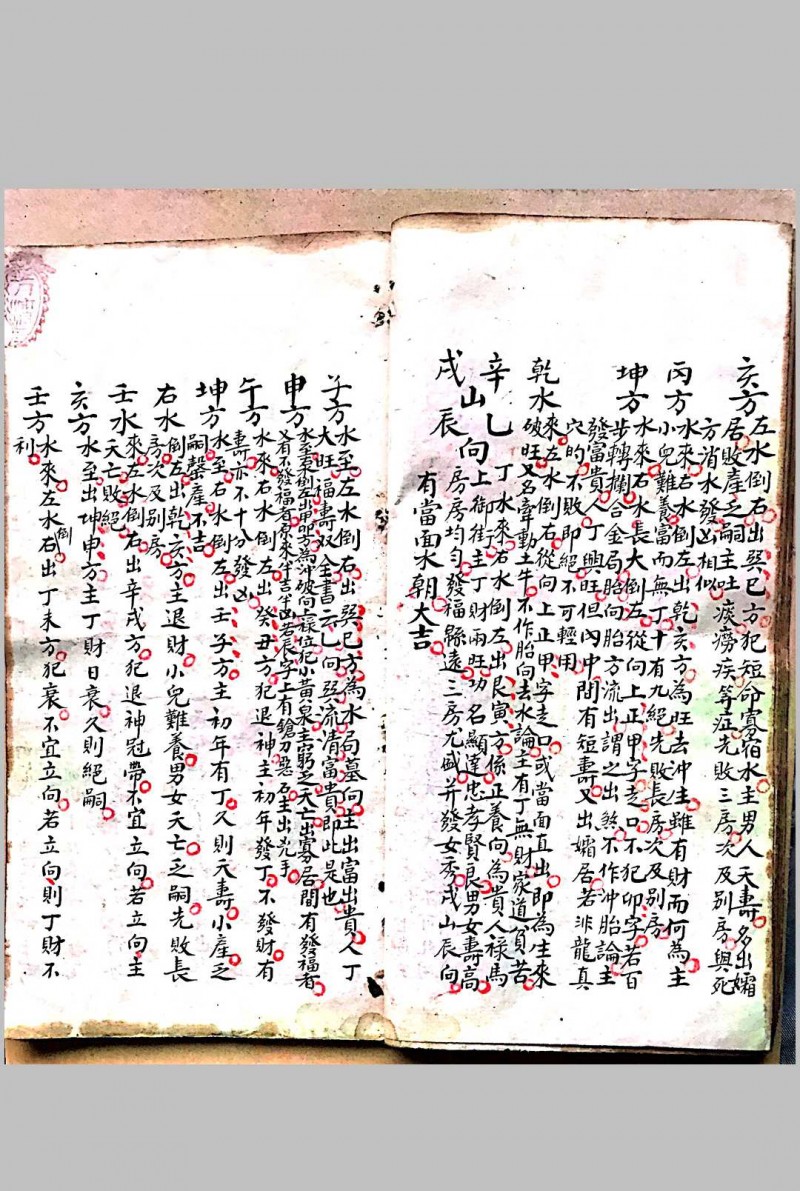 亥方左水倒右出巽巳方犯短命寡宿水主男人夭壽多出孀
居敗產乏嗣主吐痰癆疾等症先敗三房次及别房與死
方消水發凶相似
丙方水來右水倒左出乾亥方為旺去沖生雖有財而何為主
小兒難養富而無丁十有九絕先敗長房次及别房
坤方水來右水長大倒左從向上正甲字走口不犯卯字若百
步轉攔合金局胎向胎方流出謂之出煞不作沖胎論主
發富貴人丁興旺但內中間有短壽又出孀居若非龍真
穴的不敗即絕不可輕用
乾水來左水倒右從向上正甲字走口或當面直出即為生來
破旺又名牽動土牛不作胎向去水論主有丁無財家道貧苦
辛山乙向丁水來右水倒左出艮寅方係正養向為貴人祿馬
上御街主丁財兩旺功名顯達忠孝賢良男女壽高
戌 辰 房房均勻發福縣遠三房尤盛并發女秀戌山辰向
有當面水朝大吉
子方水至左水倒右出巽巳方為水局墓向主出富出貴人丁
大旺福壽双全書云乙向巽流清富貴即此是也
申方水至右水倒左出甲方為沖破向上祿位犯小黃泉主窮乏夭亡出寡居間有發福者
又有不發福者原來伴吉伴凶若辰字上有鎗刀惡石主出兇手
午方水來右水倒左出癸丑方犯退神主初年發丁不發財有
壽亦不十分發凶
坤方水至右水倒左出壬子方主初年有丁久則夭壽小產乏
嗣罄產不吉
右水倒左出乾亥方主退財小兒難養男女夭亡乏嗣先敗長
房次及别房
壬水來左水倒右出辛戌方犯退神冠帶不宜立向若立向主
夭亡敗絕
亥方水至出坤申方主丁財日衰久則絕嗣
壬方水來左水倒右出丁未方犯衰不宜立向若立向則丁財不
利